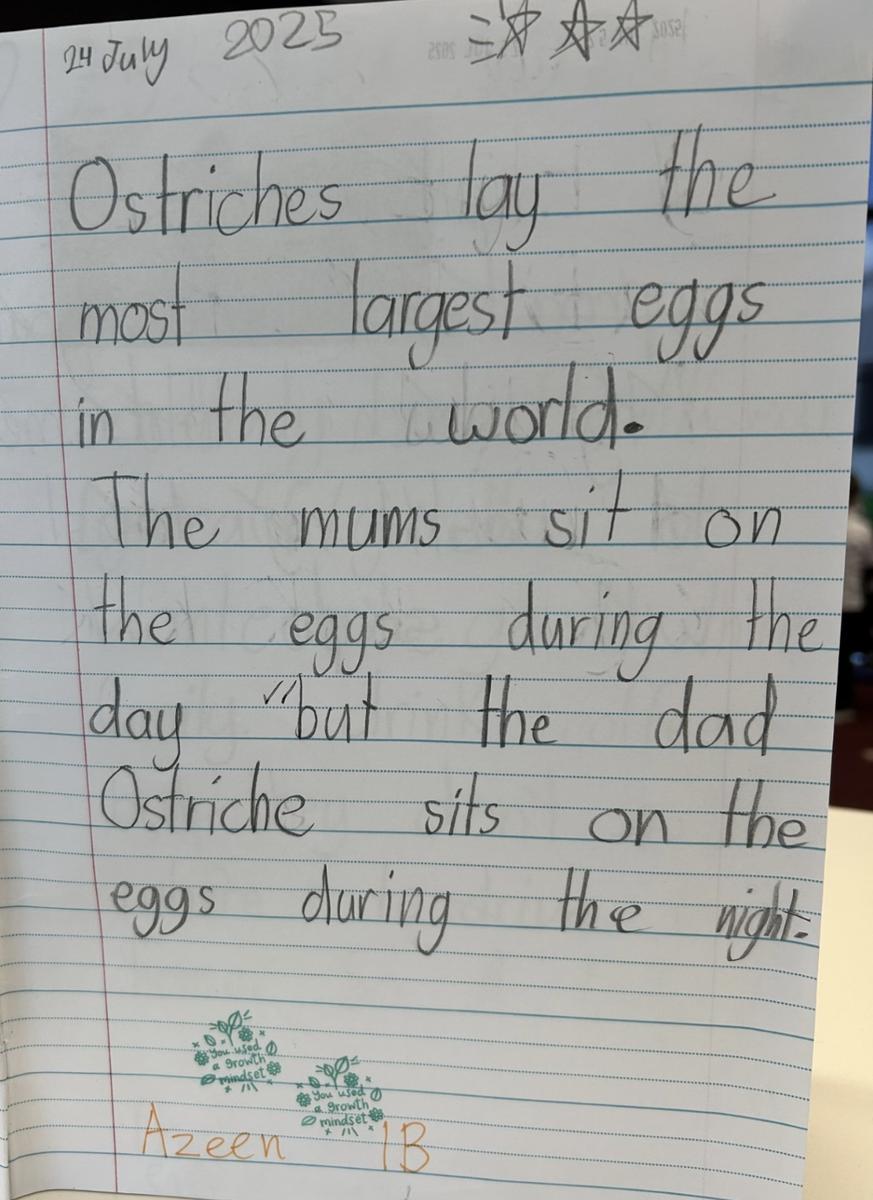 24 July 2025
Ostriches lay the
most largest eggs
in the world.
The mums sit on
the eggs during the
day but the dad
Ostriche sits on the
eggs during the night.
You used
a growth
mindset
You used
a growth
mindset
Azeen 1B